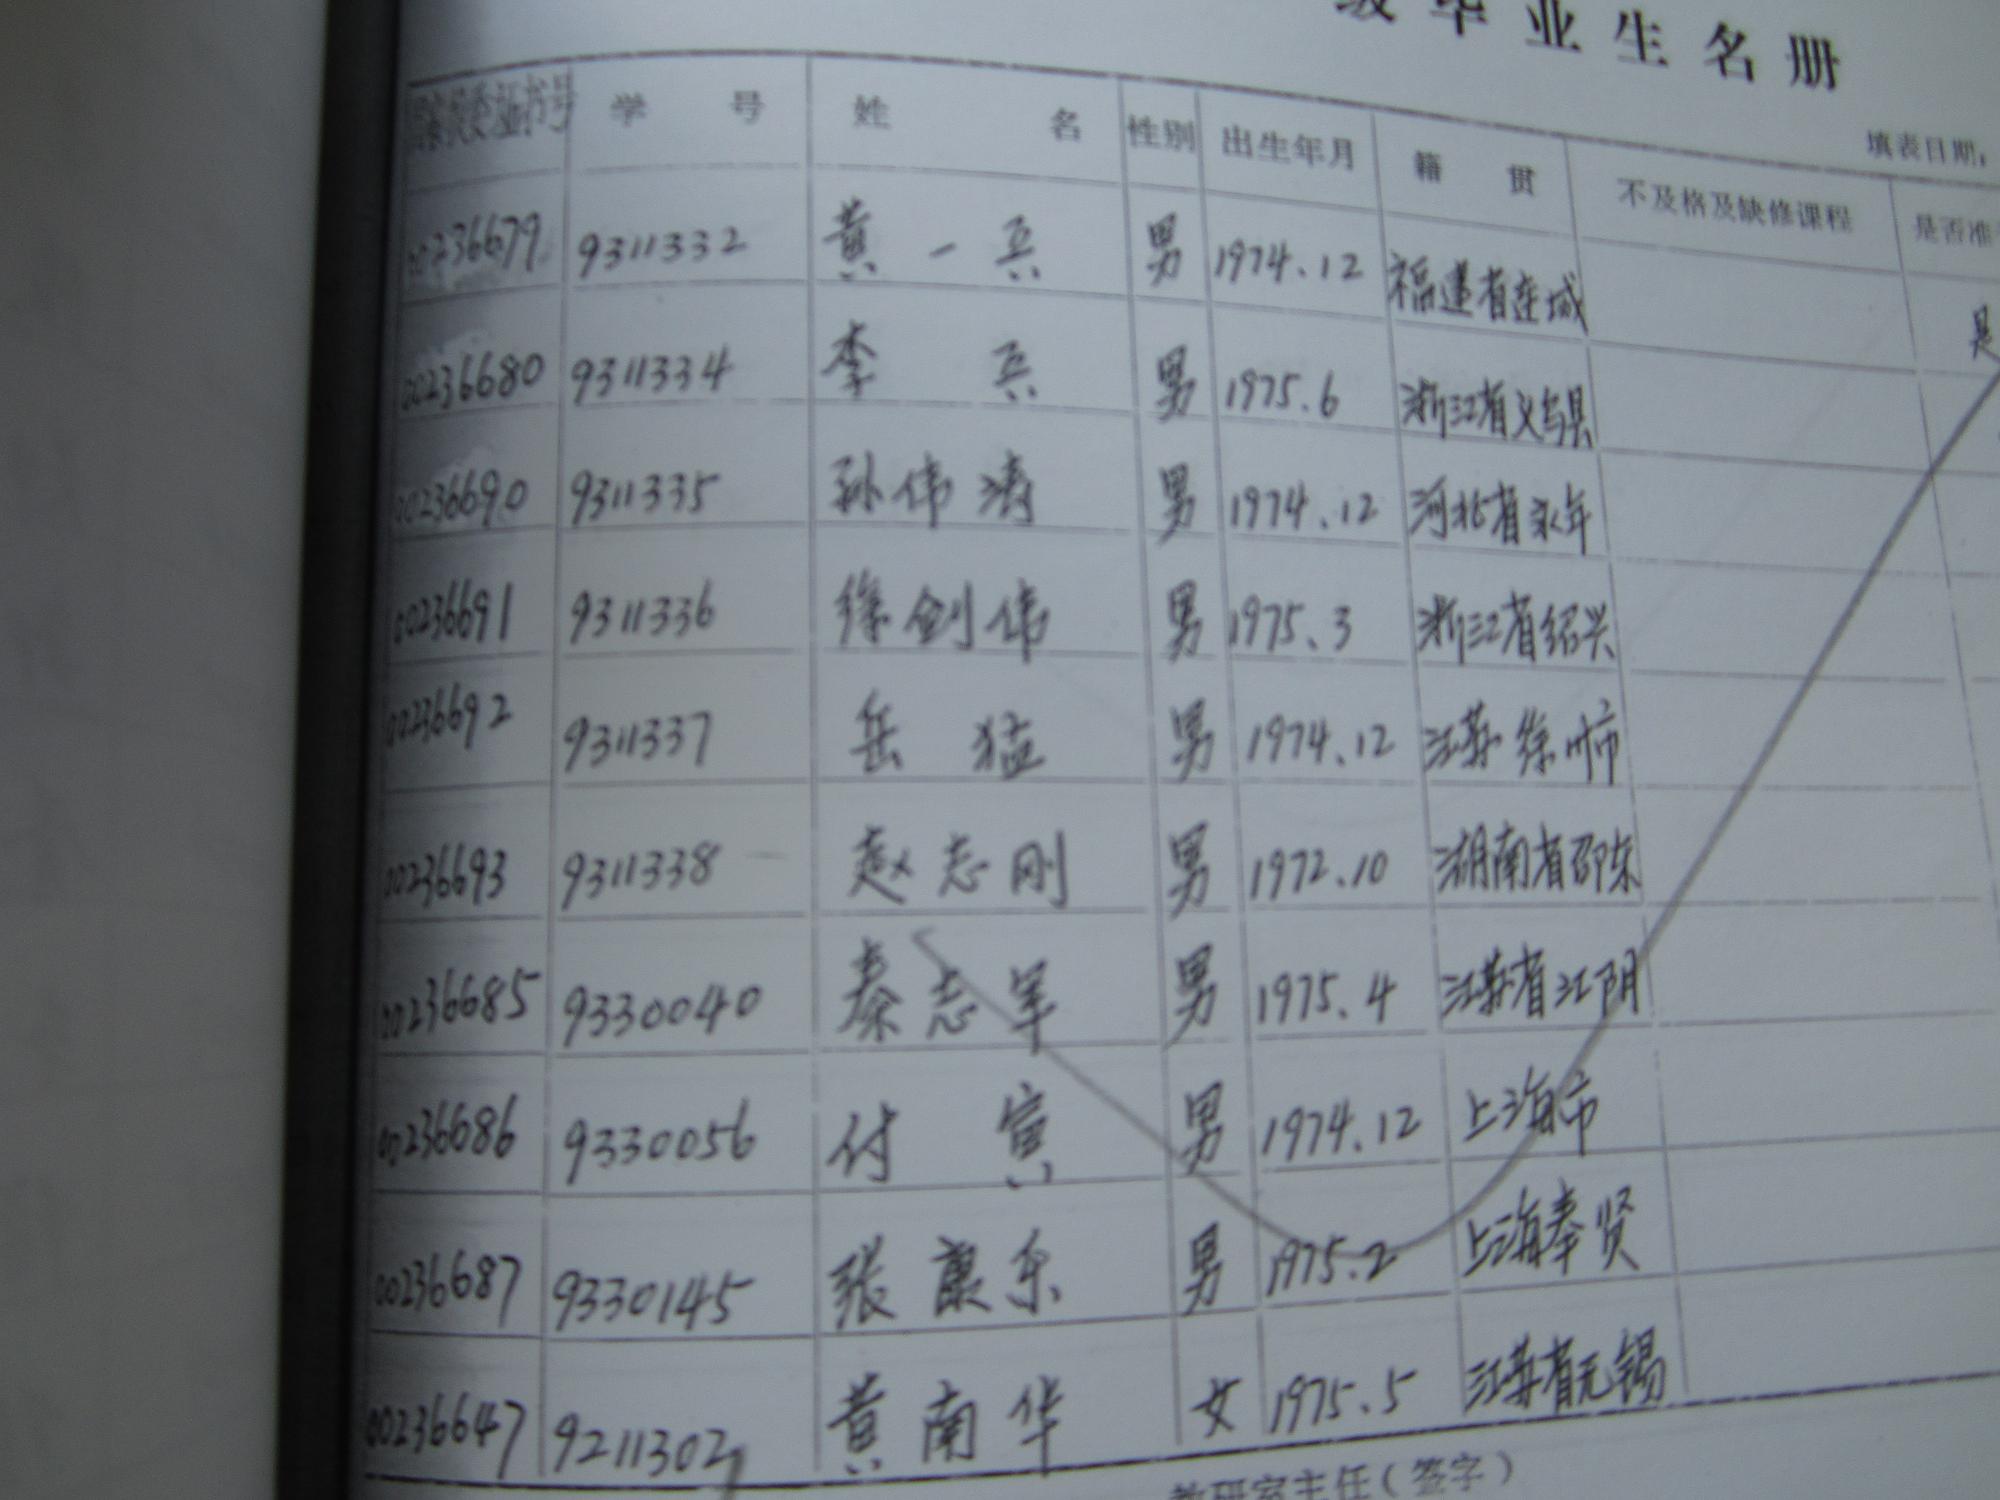 级毕业生名册
填表日期:
证书号 学号 姓名 性别 出生年月 籍贯 不及格及缺修课程 是否准
00236679 9311332 黄一兵 男 1974.12 福建省连城 是
00236680 9311334 李兵 男 1975.6 浙江省义乌县
00236690 9311335 孙伟涛 男 1974.12 河北省永年
00236691 9311336 徐剑伟 男 1975.3 浙江省绍兴
00236692 9311337 岳猛 男 1974.12 江苏徐州市
00236693 9311338 赵志刚 男 1972.10 湖南省邵东
00236685 9330040 秦志军 男 1975.4 江苏省江阴
00236686 9330056 付寅 男 1974.12 上海市
00236687 9330145 张康乐 男 1975.2 上海奉贤
00236647 9211302 黄南华 女 1975.5 江苏省无锡
教研室主任(签字)